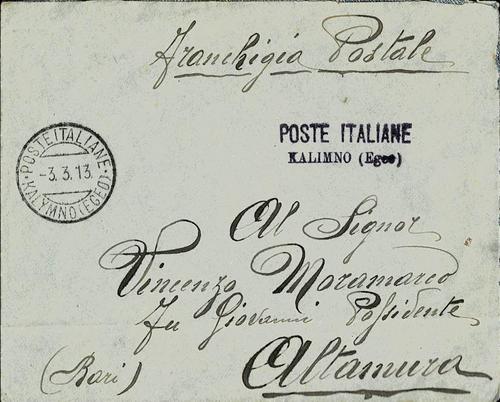 Franchigia Postale
POSTE ITALIANE
KALIMNO (Egeo)
POSTE ITALIANE
-3.3.13.
KALYMNO (EGEO)
Al Signor
Vincenzo Moramarco
fu Giovanni Possidente
(Bari) Altamura